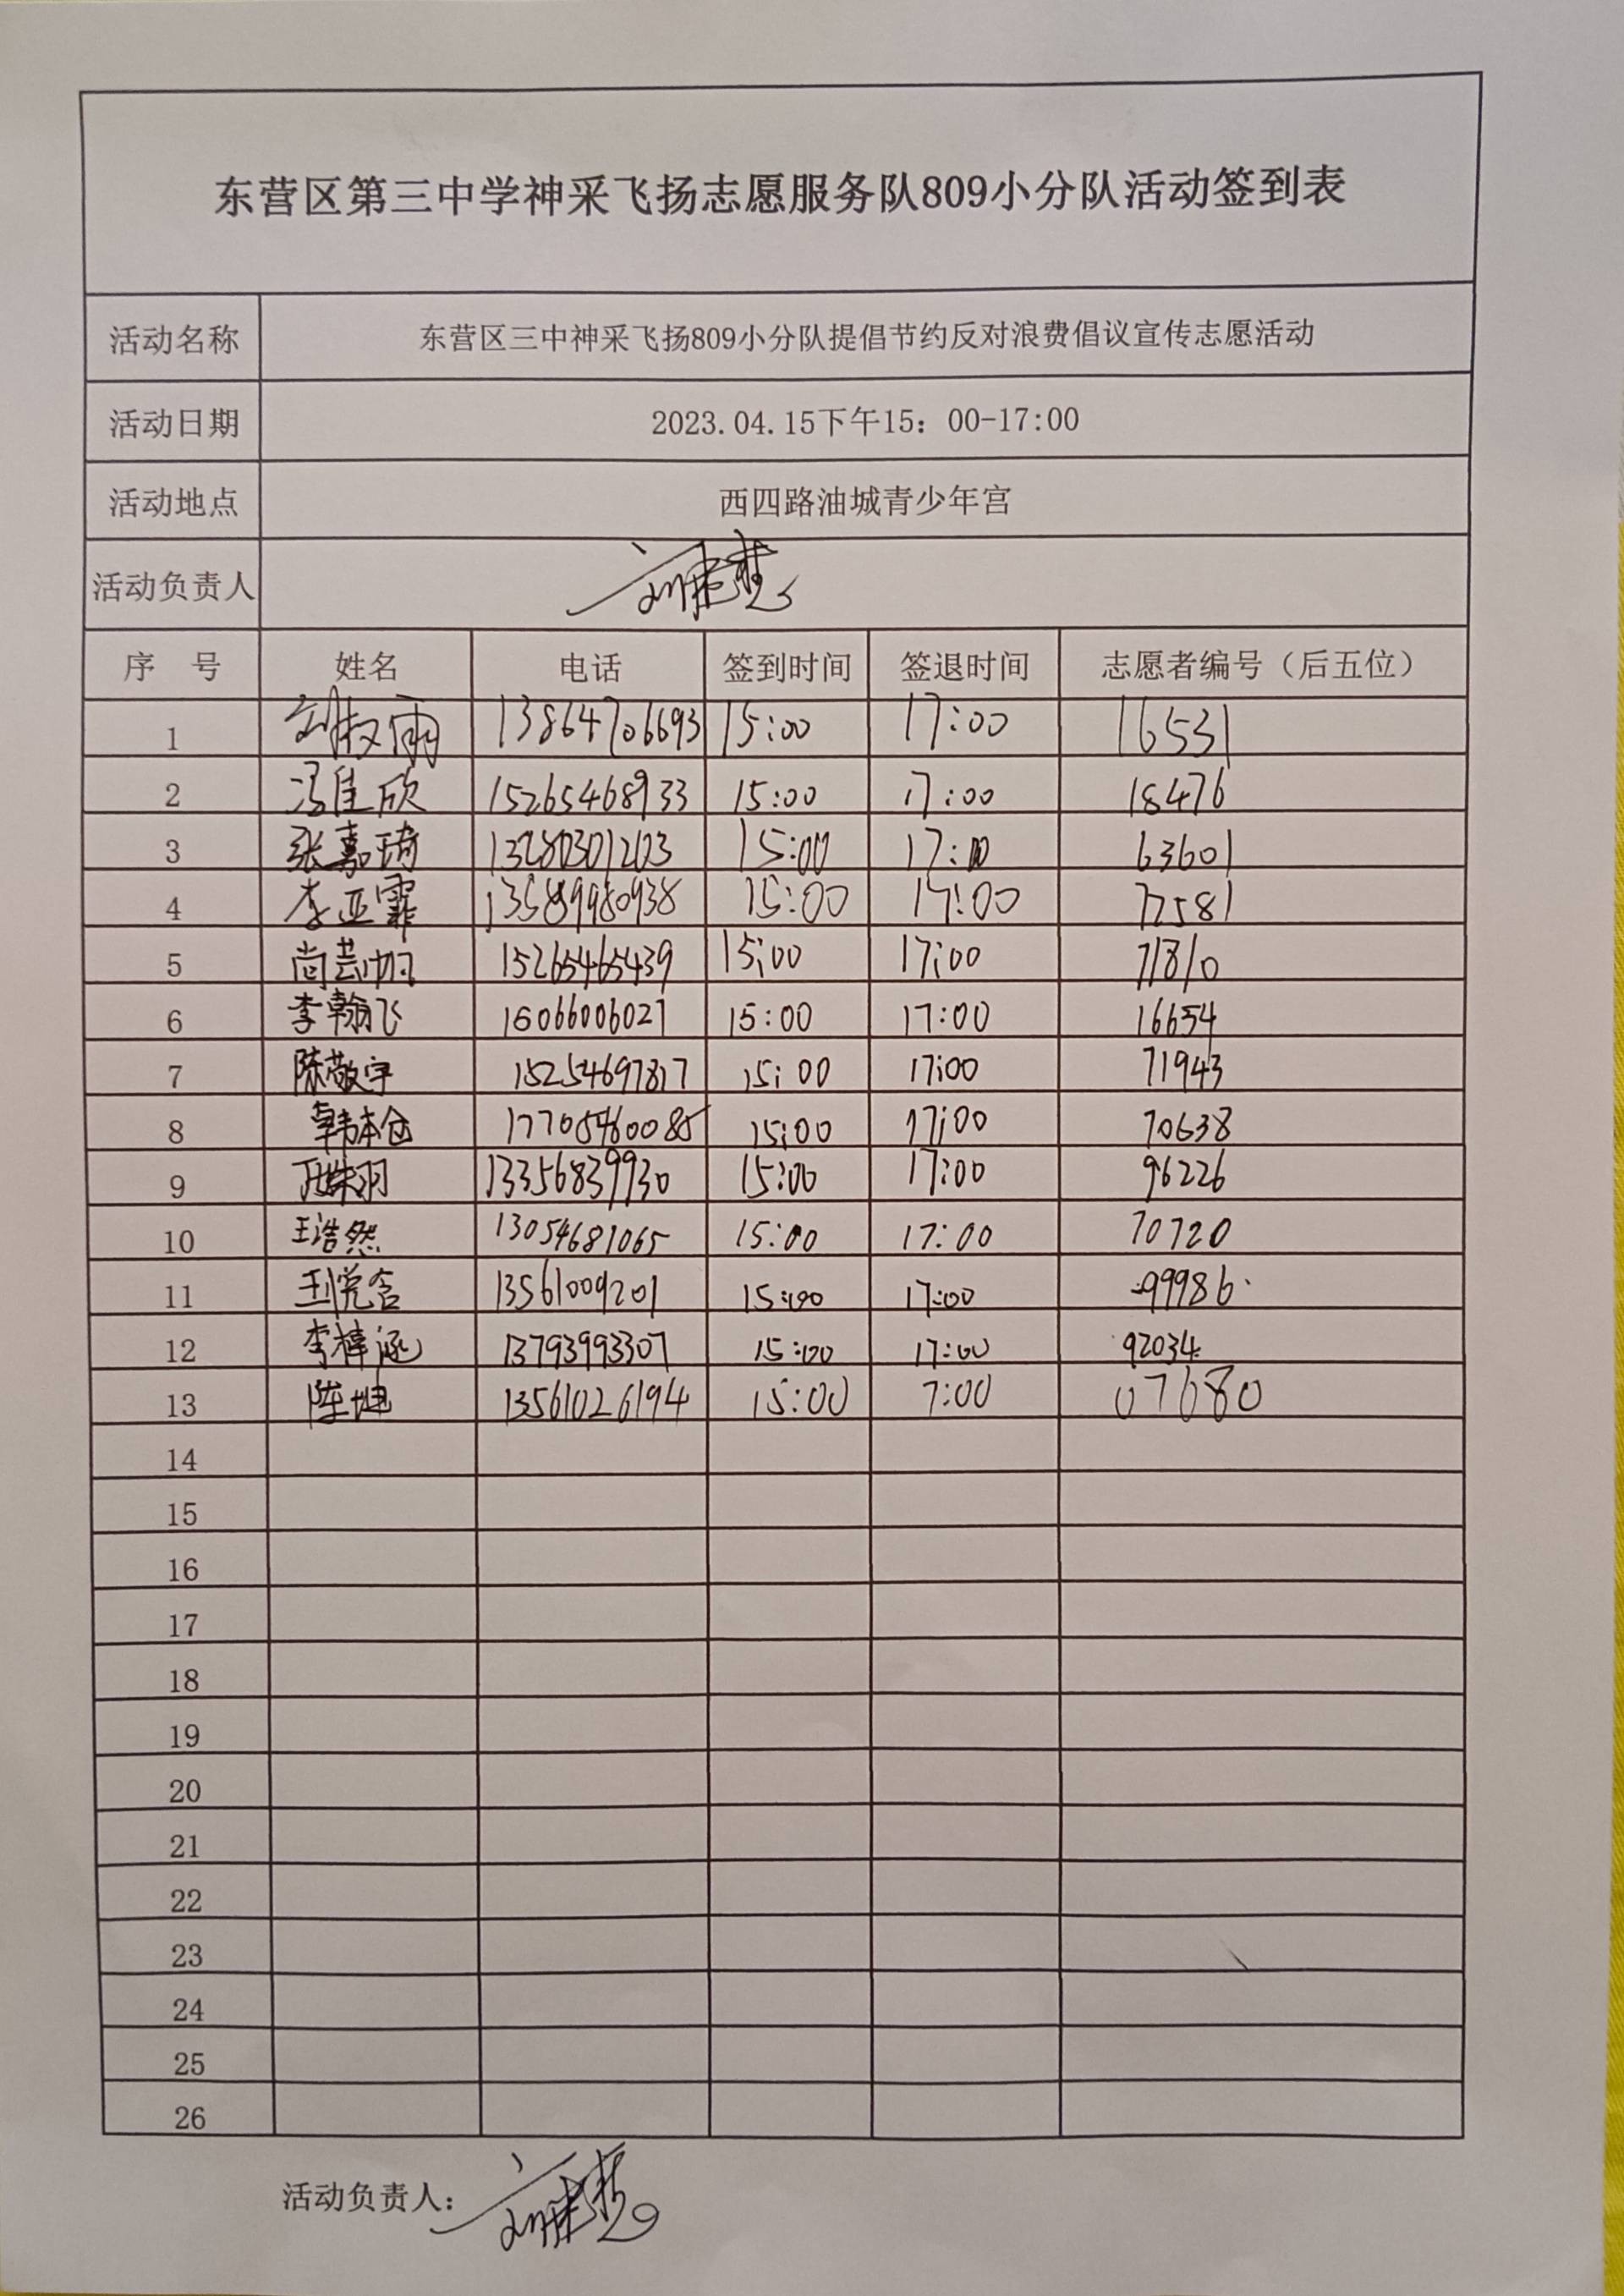 东营区第三中学神采飞扬志愿服务队809小分队活动签到表
活动名称 东营区三中神采飞扬809小分队提倡节约反对浪费倡议宣传志愿活动
活动日期 2023.04.15下午15：00-17:00
活动地点 西四路油城青少年宫
活动负责人
序 号 姓名 电话 签到时间 签退时间 志愿者编号（后五位）
1 刘淑雨 13864706693 15:00 17:00 16531
2 冯佳欣 15265468933 15:00 17:00 18476
3 张嘉琦 15:00 17:00 63601
4 李亚霏 13589980938 15:00 17:00 77581
5 15265465439 15:00 17:00 71810
6 李翰飞 15066006027 15:00 17:00 16654
7 陈敬宇 15254697817 15:00 17:00 71943
8 韩本仓 17705460085 15:00 17:00 70638
9 13356839930 15:00 17:00 96226
10 王浩然 13054681065 15:00 17:00 70720
11 13561009201 15:00 17:00 99986
12 李梓涵 13793993307 15:00 17:00 92034
13 13561026194 15:00 7:00 07680
14
15
16
17
18
19
20
21
22
23
24
25
26
活动负责人：